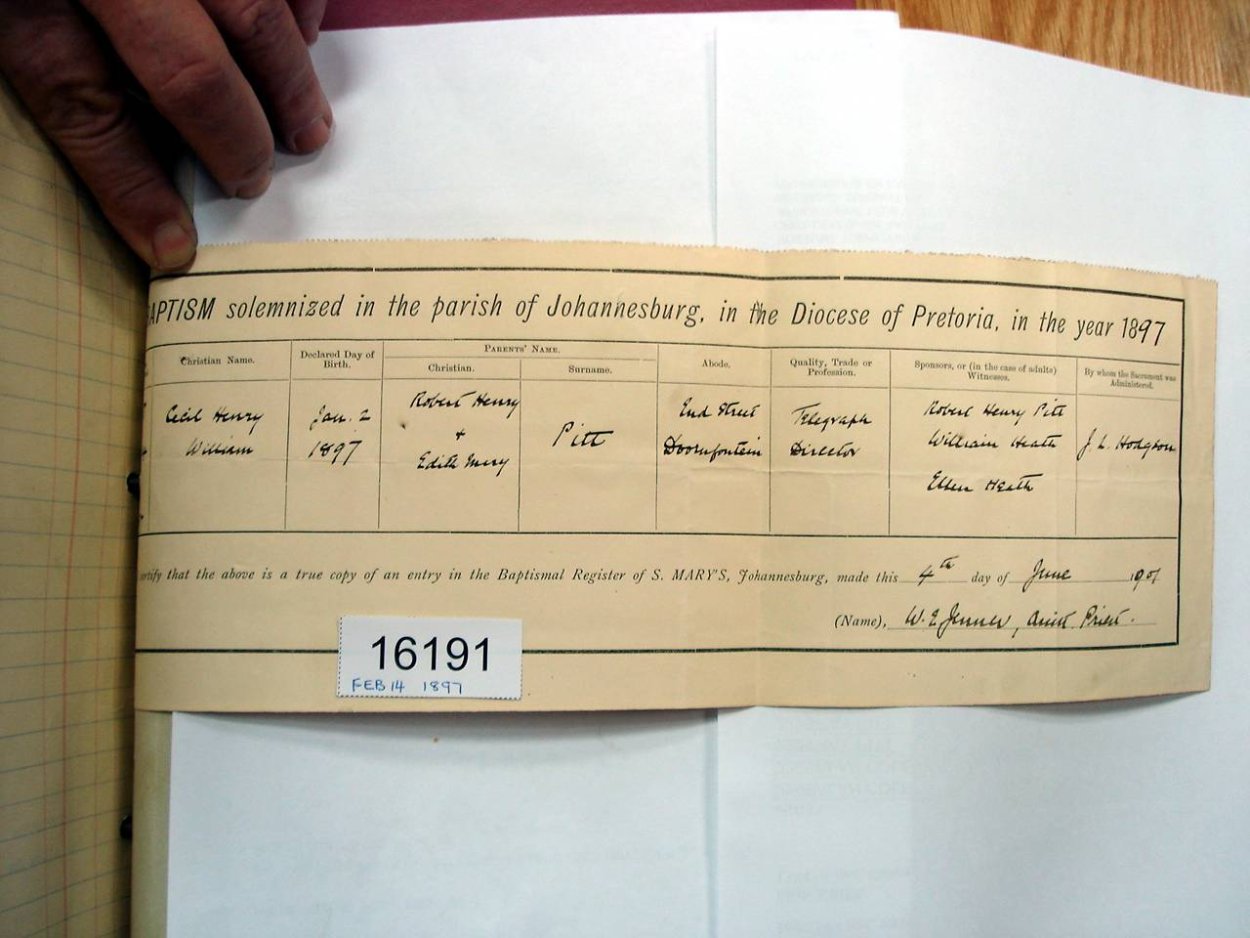 APTISM solemnized in the parish of Johannesburg, in the Diocese of Pretoria, in the year 1897
Christian Name.
Declared Day of
Birth.
PARENTS' NAME.
Christian.
Surname.
Abode.
Quality, Trade or
Profession.
Sponsors, or (in the case of adults)
Witnesses.
By whom the Sacrament was
Administered.
Cecil Henry
William
Jan. 2
1897
Robert Henry
+
Edith Mary
Pitt
End Street
Doornfontein
Telegraph
Director
Robert Henry Pitt
William Heath
Ellen Heath
J. L. Hodgson
ertify that the above is a true copy of an entry in the Baptismal Register of S. MARY'S, Johannesburg, made this 4th day of June 1901
(Name), W. E. Jenner, Priest.
16191
FEB 14 1897